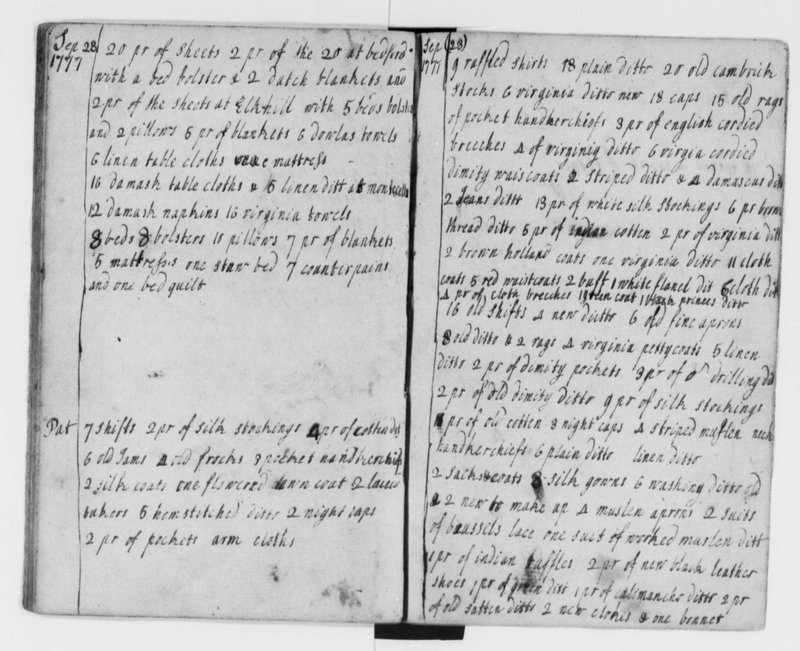 Sep 28 20 pr of sheets 2 pr of the 20 at bedford
1777 with a bed bolster & 2 dutch blankets and
2 pr of the sheets at Elkhill with 5 beds bolsters
and 2 pillows 5 pr of blankets 6 dowlas towels
6 linen table cloths one mattress
16 damask table cloths & 5 linen ditt at monticello
12 damask napkins 16 virginia towels
8 beds 8 bolsters 11 pillows 7 pr of blankets
5 mattresses one bed 7 counterpains
and one bed quilt
Pat 7 shifts 2 pr of silk stockings 4 pr of cotten ditt
6 old Jams 4 old frocks 3 pocket handkerchiefs
2 silk coats one flowered lawn coat 2 laced
tukers 5 hemstitched ditto 2 night caps
2 pr of pockets arm cloths
Sep (28)
1777 9 ruffled shirts 18 plain ditto 20 old cambrick
stocks 6 virginia ditto new 18 caps 15 old rags
of pocket handkercheifs 3 pr of english cordied
breeches 4 of virginia ditto 6 virgia cordied
dimity waiscoats 2 striped ditto & 4 damascus ditt
2 Jeans ditt 13 pr of white silk stockings 6 pr brown
thread ditto 5 pr of indian cotten 2 pr of virginia ditt
2 brown holland coats one virginia ditto 11 cloth
coats 5 red waistcoats 2 buff 1 white flanel dit 5 cloth dit
4 pr of cloth breeches coat princes ditto
16 old shifts 4 new ditto 6 old fine aprons
8 old ditto & 2 rags 4 virginia pettycoats 5 linen
ditto 2 pr of dimity pockets 3 pr of drilling do
2 pr of old dimity ditto 9 pr of silk stockings
pr of old cotten 8 night caps 4 striped muslen neck
handkerchiefs 6 plain ditto linen ditto
2 sacks & coats 8 silk gowns 6 washing ditto old
& 2 new to make up 4 muslen aprons 2 suits
of brussels lace one suit of worked muslen ditt
1 pr of indian ruffles 2 pr of new black leather
shoes 1 pr of green ditt 1 pr of calimanko ditto 2 pr
of old satten ditto 2 new cloaks & one bonnet